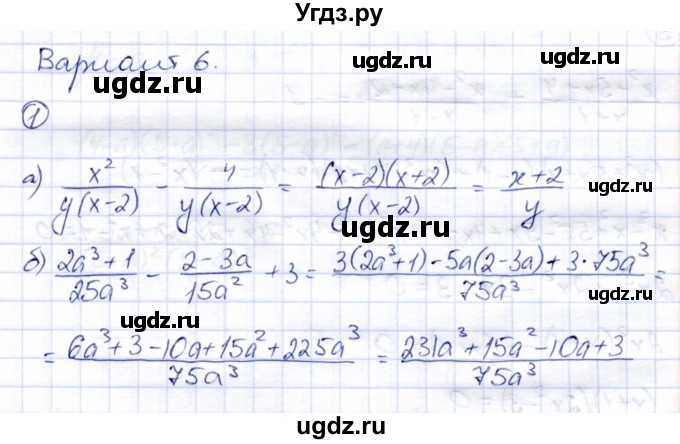 Угдз.ру
Вариант 6.
ugdz.ru ugdz.ru
1
ugdz.ru ugdz.ru
а) x²/y(x-2) - 4/y(x-2) = (x-2)(x+2)/y(x-2) = x+2/y
б) 2a³+1/25a³ - 2-3a/15a² + 3 = 3(2a³+1)-5a(2-3a)+3·75a³/75a³ =
ugdz.ru ugdz.ru
= 6a³+3-10a+15a²+225a³/75a³ = 231a³+15a²-10a+3/75a³
ugdz.ru ugdz.ru